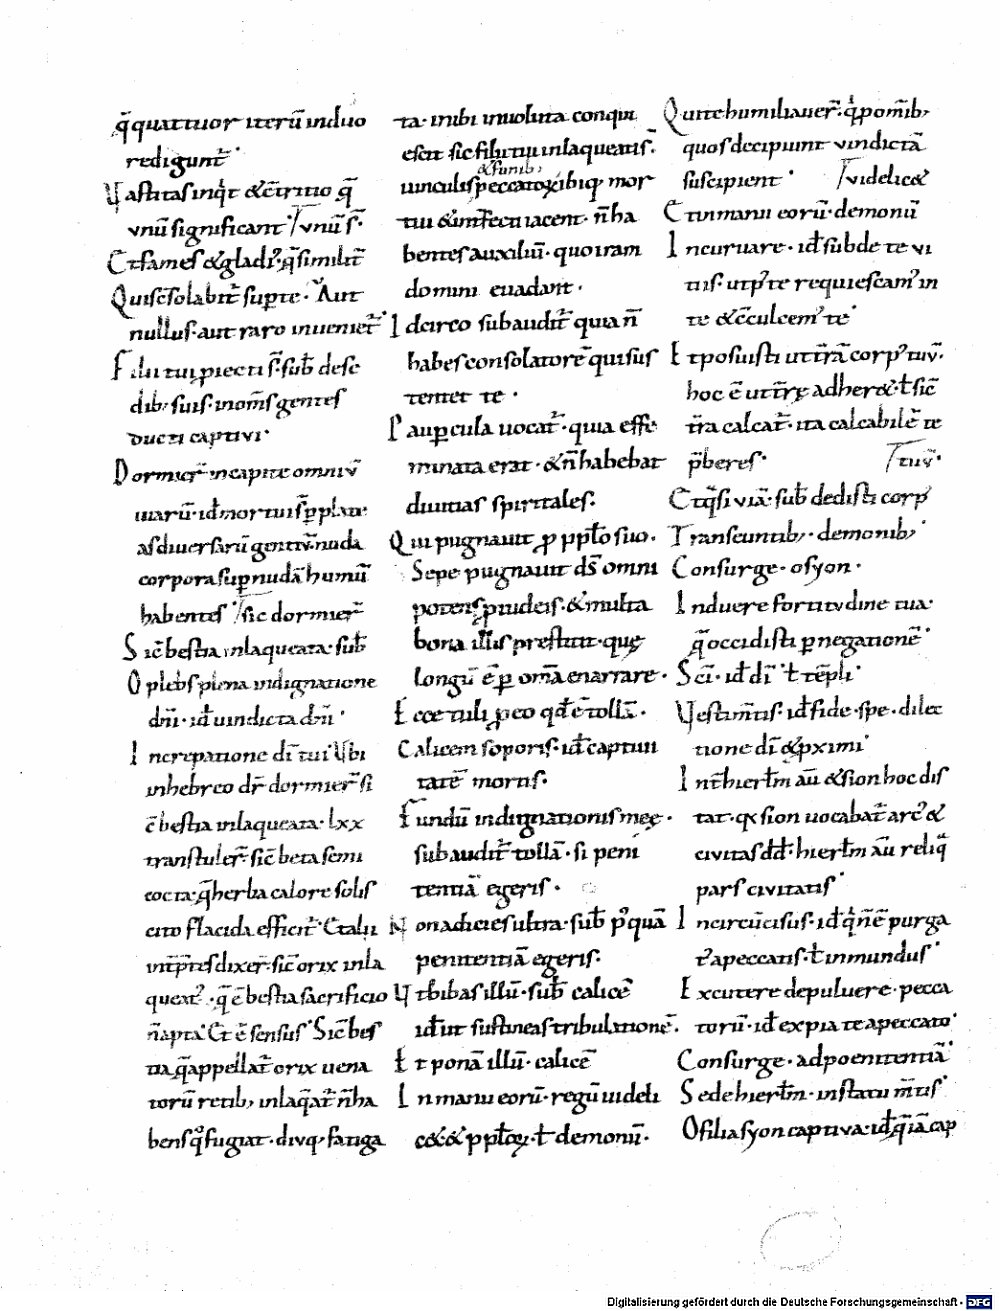 q̄ quattuor iterū in duo
rediguntᷣ.
Vastitas inq̇t &c̄tritio q̄
vnū significant ⁊ vnū s̄.
Et fames & gladiꝰ. q̄ similit̄
Quis c̄solabit̄ sup̲ te. Aut
nullus. aut raro inueniet̄.
Filii tui ꝓiecti s̄. sub̄ dese
dib; suis. in om̄s gentes
ducti captivi.
Dormier̄ in capite omniū
uiarū. id̄ mortui s̄ p̲ plate
as diuersarū gentiū. nuda
corpora sup̲ nudā humū
habentes ⁊ sic dormier̄
Sic̄ bestia inlaqueata. sub̄
O plebs plena indignatione
dn̄i. id̄ uindicta dn̄i.
Increpatione dī tui. Vbi
in hebreo dr̄ dormier̄ si
c̄ bestia inlaqueata. lxx
transtuler̄. sic̄ beta semi
cocta. q̄ herba calore solis
cito flacida efficit̄. Et alii
int̄p̄tes dixer̄. sic̄ orix inla
queatꝰ. q̄ ē bestia sacrificio
n̄ apta. Et ē sensus. Sic̄ bes
tia q̄ appellat̄ orix uena
torū retib; inlaq̄at̄. n̄ ha
bens q̊ fugiat. diuq; fatiga
ta. in ibi inuoluta conqui
escit. sic filii tui inlaqueatis.
&funib;
uinculis peccatoꝝ ibiq; mor
tui & int̄fecti iacent. n̄ ha
bentes auxiliū. quo iram
domini euadant.
Idcirco subaudit̄ quia n̄
habes consolatorē qui sus
tentet te.
Paup̲cula uocat̄. quia effe
minata erat. & n̄ habebat
diuitias spiritales.
Qui pugnauit ꝓ pp̄lo suo.
Sepe pugnauit ds̄ omni
potens ꝓ iudeis. & multa
bona illis prestitit. quę
longū ē p̲ om̄a enarrare.
Ecce tuli ꝓ eo qd̄ ē tollā.
Calicem soporis. id̄ captiui
tatē mortis.
Fundū indignationis meę.
subaudit̄ tollā. si peni
tentiā egeris.
Non adicies ultra. sub̄ pꝰquā
penitentiā egeris.
Vt bibas illū. sub̄ calicē
id̄ ut sustineas tribulationē.
Et ponā illū. calicē
In manu eorū. regū uideli
c& & pp̄loꝝ. ł demoniū.
Qui te humiliauer̄. q̇ p om̄ib;
quos decipiunt vindictā
suscipient. ⁊ videlic&
Et in manu eorū. demoniū
Incuruare. id̄ subde te vi
tiis. ut p̲ te requiescamꝰ in
te & c̄culcemꝰ te.
Et posuisti ut t̄rā corpꝰ tuū.
hoc ē ut t̄rę adher&. ł sic̄
t̄ra calcat̄. ita calcabilē te
p̄beres. ⁊ tuū.
Et q̄si viā. sub̄ dedisti corpꝰ
Transeuntib;. demonib;
Consurge. o syon.
Induere fortitudine tua.
q̄ occidisti p̲ negationē.
Sc̄i. id̄ dī. ł tēpli.
Vestim̄tis. id̄ fide. spe. dilec
tione dī & p̲ximi.
Int̄ hierl̄m aū & sion hoc dis
tat. qꝛ sion uocabat̄ arcꝰ &
civitas dd̄. hierl̄m aū reliq̄
pars civitatis.
Incircūcisus. id̄ q̇ n̄ ē purga
tꝰ a peccatis. ł inmundus.
Excutere de puluere. pecca
torū. id̄ expia te a peccato.
Consurge. ad poenitentiā.
Sede hierl̄m. in statu m̄tis.
O filia syon captiva. id̄ q̄ iā cap
Digitalisierung gefördert durch die Deutsche Forschungsgemeinschaft - DFG